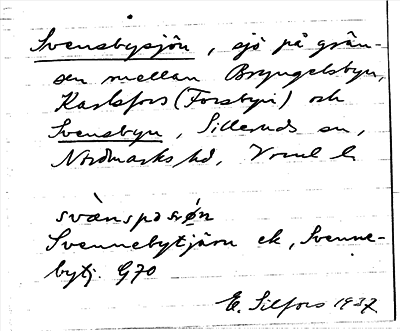 Svensbysjön, sjö på grän-
sen mellan Bryngelsbyn,
Karlsfors (Forsbyn) och
Svensbyn, Silleruds sn,
Nordmarks hd, Vrml l.
svænspɔ
Svennebytjärn ek, Svenne-
bytj. G70
E. Silfors 1937